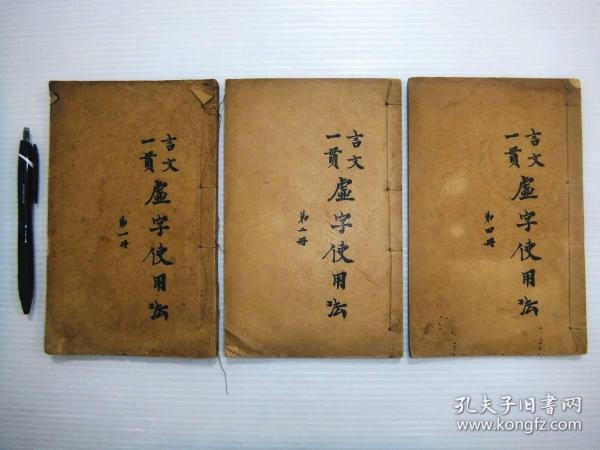 言文
一贯
虚字使用法
第一册
言文
一贯
虚字使用法
第二册
言文
一贯
虚字使用法
第四册
孔夫子旧书网
www.kongfz.com